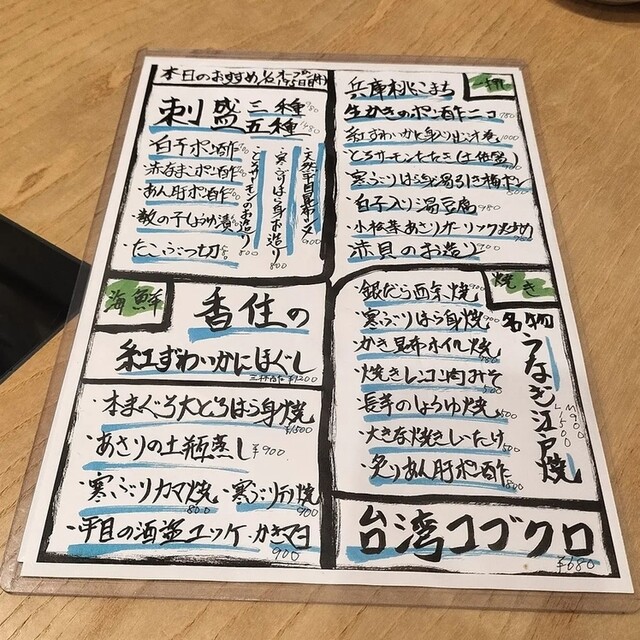 本日のおすすめ
刺盛 三種
五種
白子ポン酢
赤なまこポン酢
あん肝ポン酢
数の子しょうゆ漬
たこぶつ切
とろサーモンのお造り 800
寒ぶりはらみお造り 800
天然平目昆布〆 900
兵庫 桃こまち
生かきのポン酢 二コ 780
紅ずわいかに 1000
寒ぶりはら身湯引き梅
白子入り湯豆腐 980
小松菜あさりガーリック炒め
赤貝のお造り 700
海鮮
香住の
紅ずわいかにほぐし
¥1200
・本まぐろ大とろはら身焼 ¥1500
・あさりの土瓶蒸し ¥900
・寒ぶりカマ焼 800
・平目の酒盗ユッケ・かきマヨ 900
焼き
・銀だら西京焼 900
・寒ぶりはら身焼 900
・かき昆布ホイル焼 780
・焼きレンコン肉みそ
・長芋のしょうゆ焼 500
・大きな焼きしいたけ 500
・炙りあん肝ポン酢 800
名物
うなぎ江戸焼
M900
L1500
台湾コブクロ
¥680